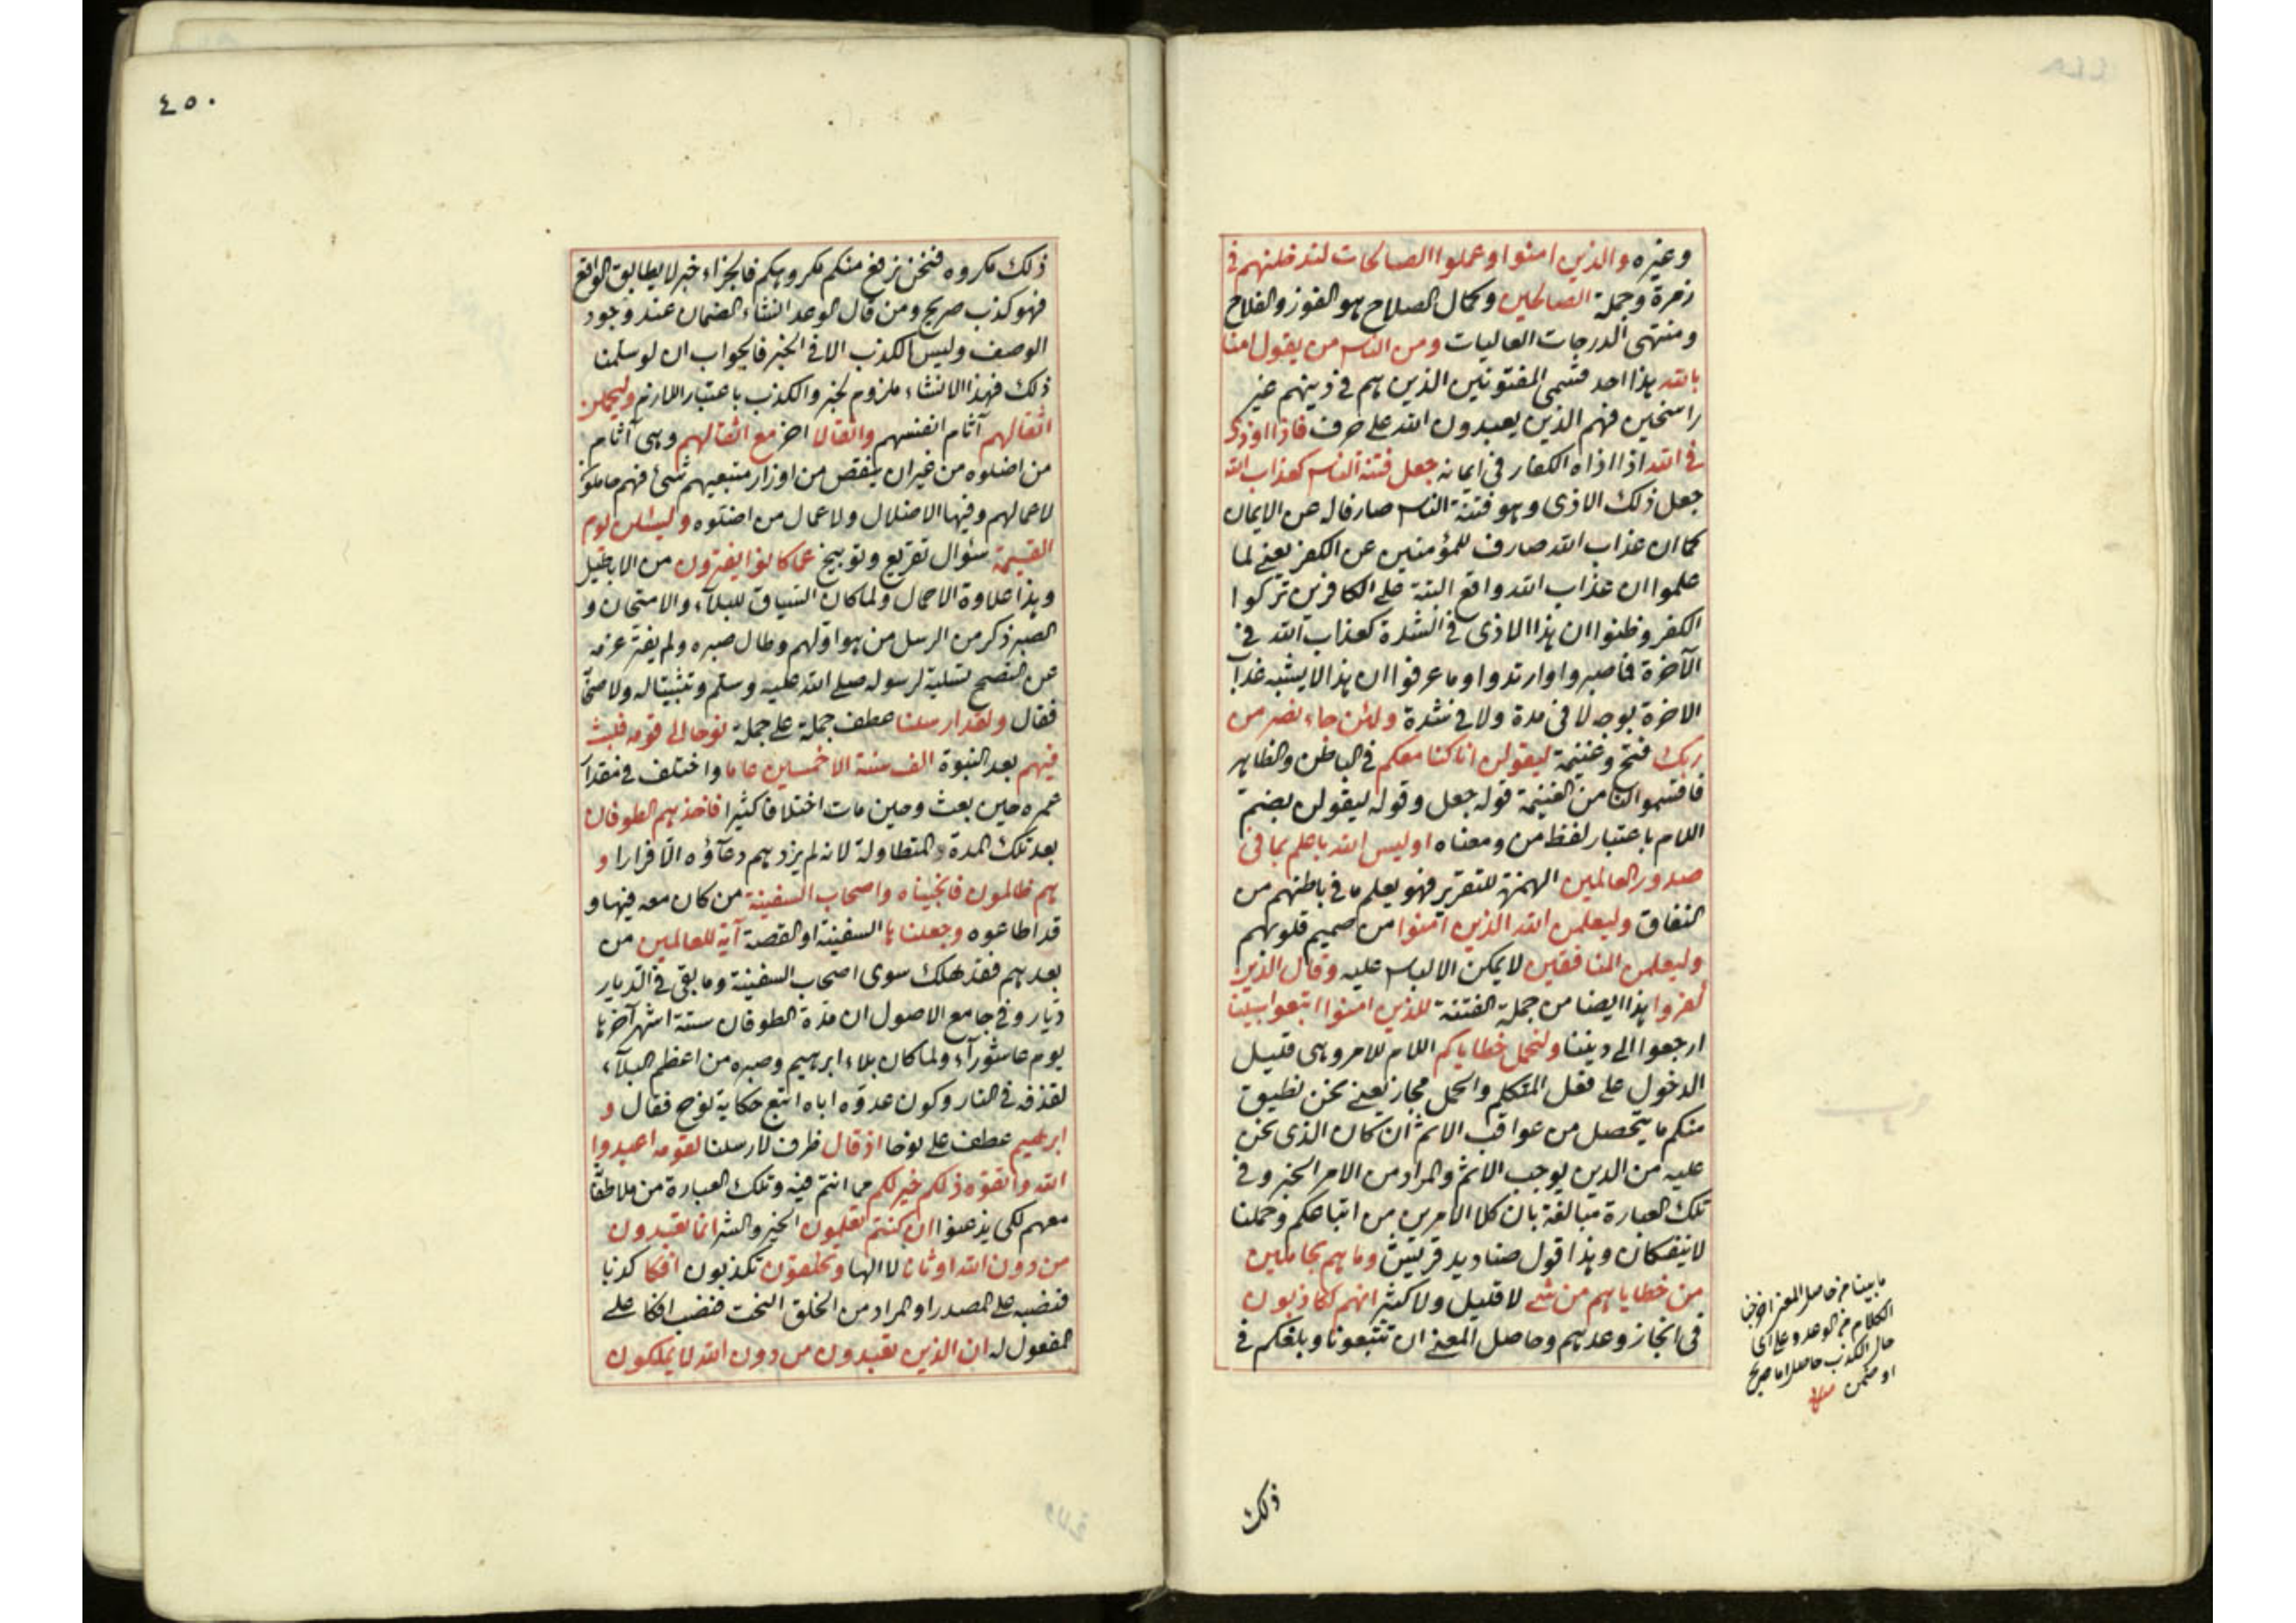 وغيره والذين امنوا وعملوا الصالحات لندخلنهم فى
زمرة وجملة الصالحين وكمال الصلاح هو الفوز والفلاح
ومنتهى الدرجات العاليات ومن الناس من يقول امنا
بالله هذا احد قسمى المفتونين الذين هم فى دينهم غير
راسخين فهم الذين يعبدون الله على حرف فاذا اوذى
فى الله اذا اذاه الكفار فى ايمانه جعل فتنة الناس كعذاب الله
جعل ذلك الاذى وهو فتنة الناس صارفا له عن الايمان
كما ان عذاب الله صارف للمؤمنين عن الكفر يعنى لما
علموا ان عذاب الله واقع البتة على الكافرين تركوا
الكفر وظنوا ان هذا الاذى فى الشدة كعذاب الله فى
الآخرة فما صبروا وارتدوا وما عرفوا ان هذا لا يشبه عذاب
الاخرة بوجه لا فى مدة ولا فى شدة ولئن جاء نصر من
ربك فتح وغنيمة ليقولن انا كنا معكم فى الباطن والظاهر
فاقسموا لنا من الغنيمة قوله جعل وقوله ليقولن بضم
اللام باعتبار لفظ من ومعناه اوليس الله باعلم بما فى
صدور العالمين الهمزة للتقرير فهو يعلم ما فى باطنهم من
النفاق وليعلمن الله الذين آمنوا من صميم قلوبهم
وليعلمن المنافقين لا يمكن الالباس عليه وقال الذين
كفروا هذا ايضا من جملة الفتنة للذين امنوا اتبعوا سبيلنا
ارجعوا الى ديننا ولنحمل خطاياكم اللام للامر وهى قليل
الدخول على فعل المتكلم والحمل مجاز يعنى نحن نطيق
منكم ما يتحصل من عواقب الاثم ان كان الذى نحن
عليه من الدين يوجب الاثم والمراد من الامر الخبر وفى
تلك العبارة مبالغة بان كلا الامرين من اتباعكم وحملنا
لا ينفكان وهذا قول صناديد قريش وما هم بحاملين
من خطاياهم من شئ لا قليل ولا كثير انهم لكاذبون
فى انجاز وعدهم وحاصل المعنى ان تتبعونا وبلغكم فى
ما بينا من حاصل المعنى
الكلام من الوعد وعلى اى
حال الكذب حاصل اما صريح
او ضمن منه
ذلك
٤٥٠
ذلك مكروه فنحن نرفع منكم مكروهكم فالجزاء خبر لا يطابق الواقع
فهو كذب صريح ومن قال الوعد انشاء الضمان عند وجود
الوصف وليس الكذب الا فى الخبر فالجواب ان لو سلمنا
ذلك فهذا الانشاء ملزوم لخبر والكذب باعتبار اللازم وليحملن
اثقالهم آثام انفسهم واثقالا اخر مع اثقالهم وهى آثام
من اضلوه من غير ان ينقص من اوزار متبعيهم شئ فهم حاملون
لاعمالهم وفيها الاضلال ولاعمال من اضلوه وليسئلن يوم
القيمة سؤال تقريع وتوبيخ عما كانوا يفترون من الاباطيل
وهذا علاوة الاحمال ولما كان السياق للبلاء والامتحان و
الصبر ذكر من الرسل من هو اولهم وطال صبره ولم يفتر عزمه
عن النصح تسلية لرسوله صلى الله عليه وسلم وتثبيتا له ولاصحابه
فقال ولقد ارسلنا عطف جملة على جملة نوحا الى قومه فلبث
فيهم بعد النبوة الف سنة الا خمسين عاما واختلف فى مقدار
عمره حين بعث وحين مات اختلافا كثيرا فاخذهم الطوفان
بعد تلك المدة المتطاولة لانه لم يزدهم دعآؤه الا فرارا و
هم ظالمون فانجيناه واصحاب السفينة من كان معه فيها و
قد اطاعوه وجعلناها السفينة او القصة آية للعالمين من
بعدهم فقد هلك سوى اصحاب السفينة وما بقى فى الديار
ديار وفى جامع الاصول ان مدة الطوفان ستة اشهر آخرها
يوم عاشورآء ولما كان بلاء ابرهيم وصبره من اعظم البلآء
لقذفه فى النار وكون عدوه اباه اتبع حكاية نوح فقال و
ابرهيم عطف على نوحا اذ قال ظرف لارسلنا لقومه اعبدوا
الله واتقوه ذلكم خير لكم مما انتم فيه وتلك العبارة من ملاطفة
معهم لكى يذعنوا ان كنتم تعلمون الخير والشر انما تعبدون
من دون الله اوثانا لا الها وتخلقون تكذبون افكا كذبا
فنصبه على المصدر او المراد من الخلق النحت فنصب افكا على
المفعول له ان الذين تعبدون من دون الله لا يملكون